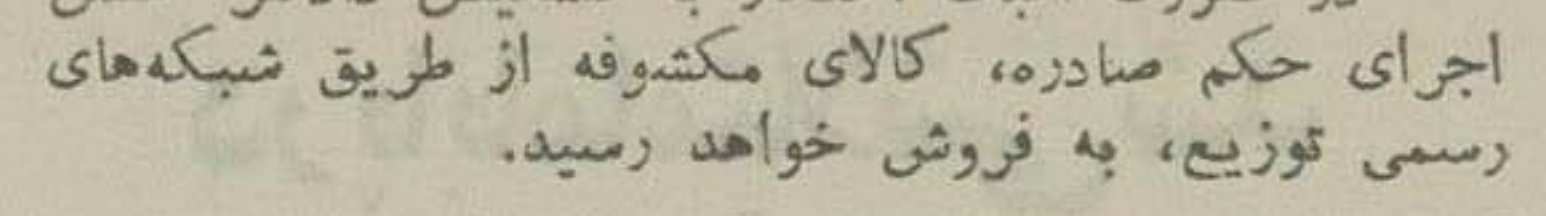 اجرای حکم صادره، کالای مکشوفه از طریق شبکه‌های
رسمی توزیع، به فروش خواهد رسید.